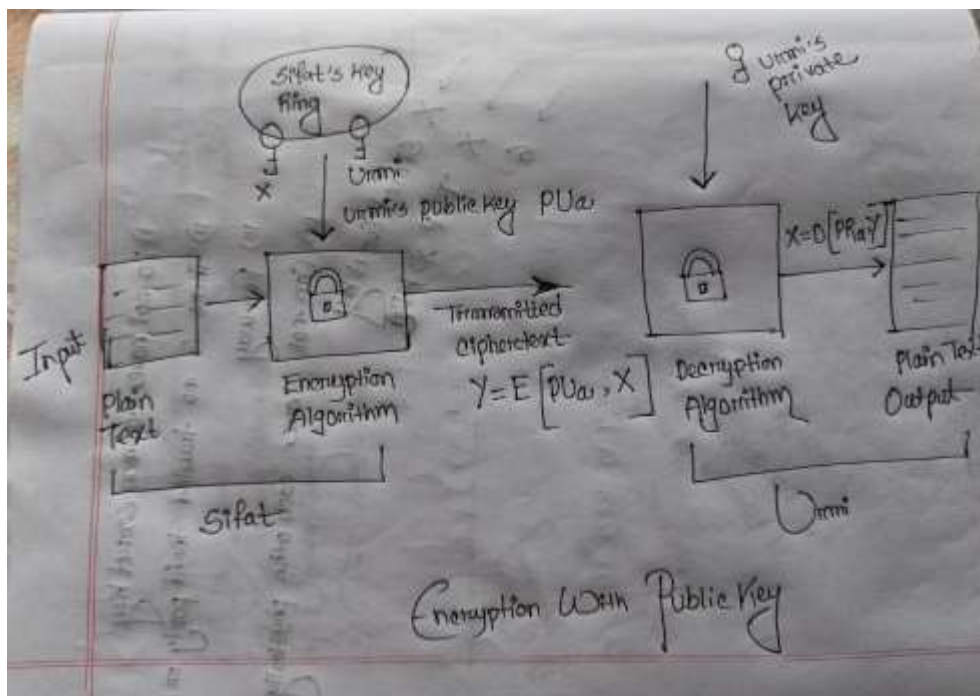 Sifat's Key
Ring
X
Urmi
Urmi's public key PUa
Urmi's
private
key
Input
Plain
Text
Encryption
Algorithm
Transmitted
Ciphertext
Y=E[PUa, X]
Decryption
Algorithm
X=D[PRa,Y]
Plain Text
Output
Sifat
Urmi
Encryption With Public Key